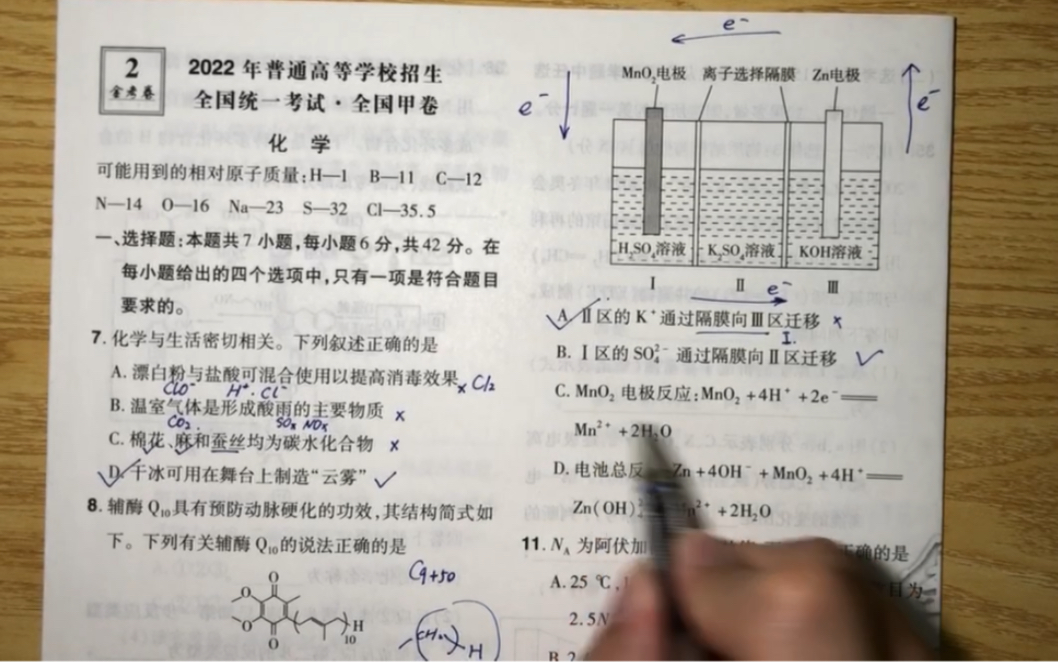 2
金考卷
2022年普通高等学校招生
全国统一考试·全国甲卷
化 学
可能用到的相对原子质量:H—1 B—11 C—12
N—14 O—16 Na—23 S—32 Cl—35.5
一、选择题:本题共7小题,每小题6分,共42分。在
每小题给出的四个选项中,只有一项是符合题目
要求的。
7.化学与生活密切相关。下列叙述正确的是
A.漂白粉与盐酸可混合使用以提高消毒效果 × Cl₂
ClO⁻ H⁺·Cl⁻
B.温室气体是形成酸雨的主要物质 ×
CO₂ SOx NOx
C.棉花、麻和蚕丝均为碳水化合物 ×
D.干冰可用在舞台上制造“云雾” ✓
8.辅酶Q₁₀具有预防动脉硬化的功效,其结构简式如
下。下列有关辅酶Q₁₀的说法正确的是
C9+50
O
O
O
O
H
10
H
e⁻
e⁻
e⁻
MnO₂电极 离子选择隔膜 Zn电极
H₂SO₄溶液 K₂SO₄溶液 KOH溶液
Ⅰ Ⅱ Ⅲ
e⁻
A.Ⅱ区的K⁺通过隔膜向Ⅲ区迁移 ×
I.
B.Ⅰ区的SO₄²⁻通过隔膜向Ⅱ区迁移 ✓
C.MnO₂电极反应:MnO₂+4H⁺+2e⁻══
Mn²⁺+2H₂O
D.电池总反 Zn+4OH⁻+MnO₂+4H⁺══
Zn(OH) n²⁺+2H₂O
11.N_A为阿伏加 正确的是
A.25 ℃, 目为
2.5N
B.2